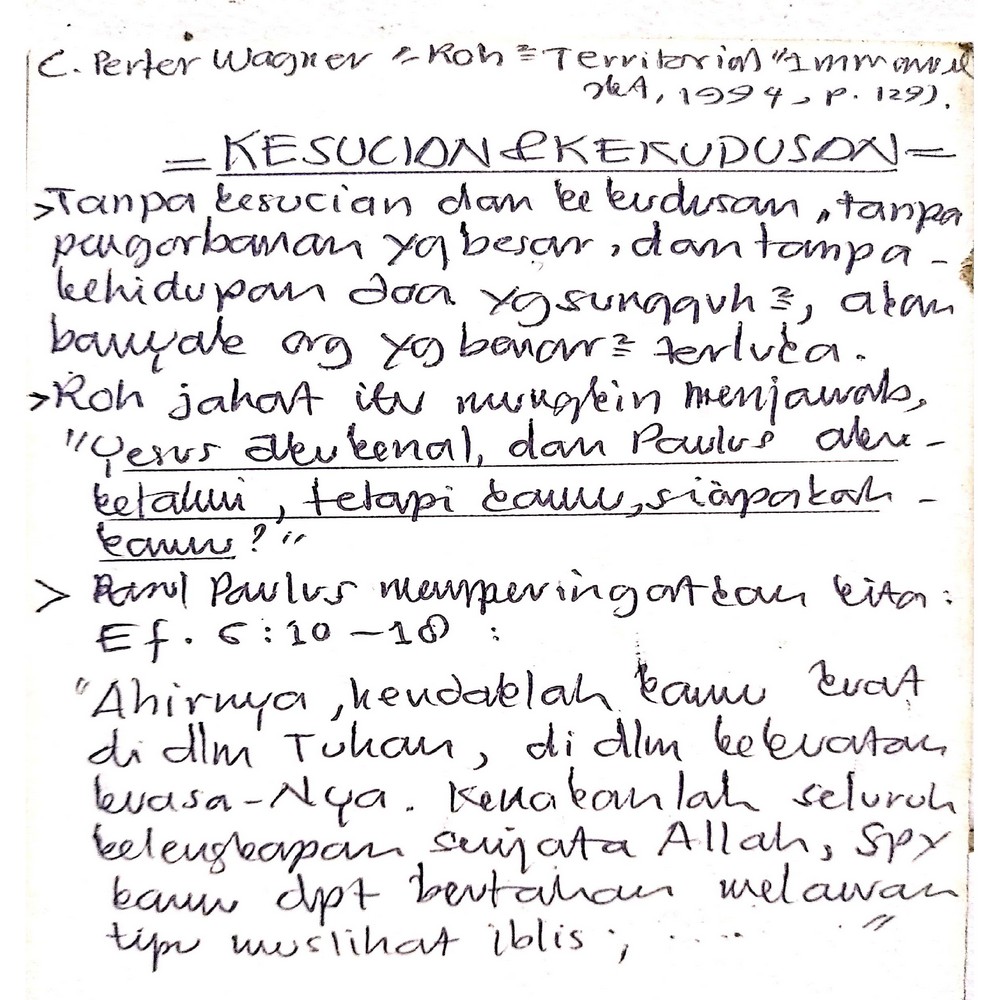 C. Perter Wagner "Roh² Territorial" Immanuel
JKA, 1994, p. 129).
= KESUCIAN & KEKUDUSAN =
> Tanpa kesucian dan kekudusan, tanpa
pengorbanan yg besar, dan tampa -
kehidupan doa yg sungguh², akan
banyak org yg benar² terluka.
> Roh jahat itu mungkin menjawab,
"Yesus aku kenal, dan Paulus aku -
ketahui, tetapi kamu, siapakah -
kamu?"
> Rasul Paulus memperingatkan kita:
Ef. 6:10-18 :
"Ahirnya, hendaklah kamu kuat
di dlm Tuhan, di dlm kekuatan
kuasa-Nya. Kenakanlah seluruh
kelengkapan senjata Allah, spy
kamu dpt bertahan melawan
tipu muslihat iblis; ..... "